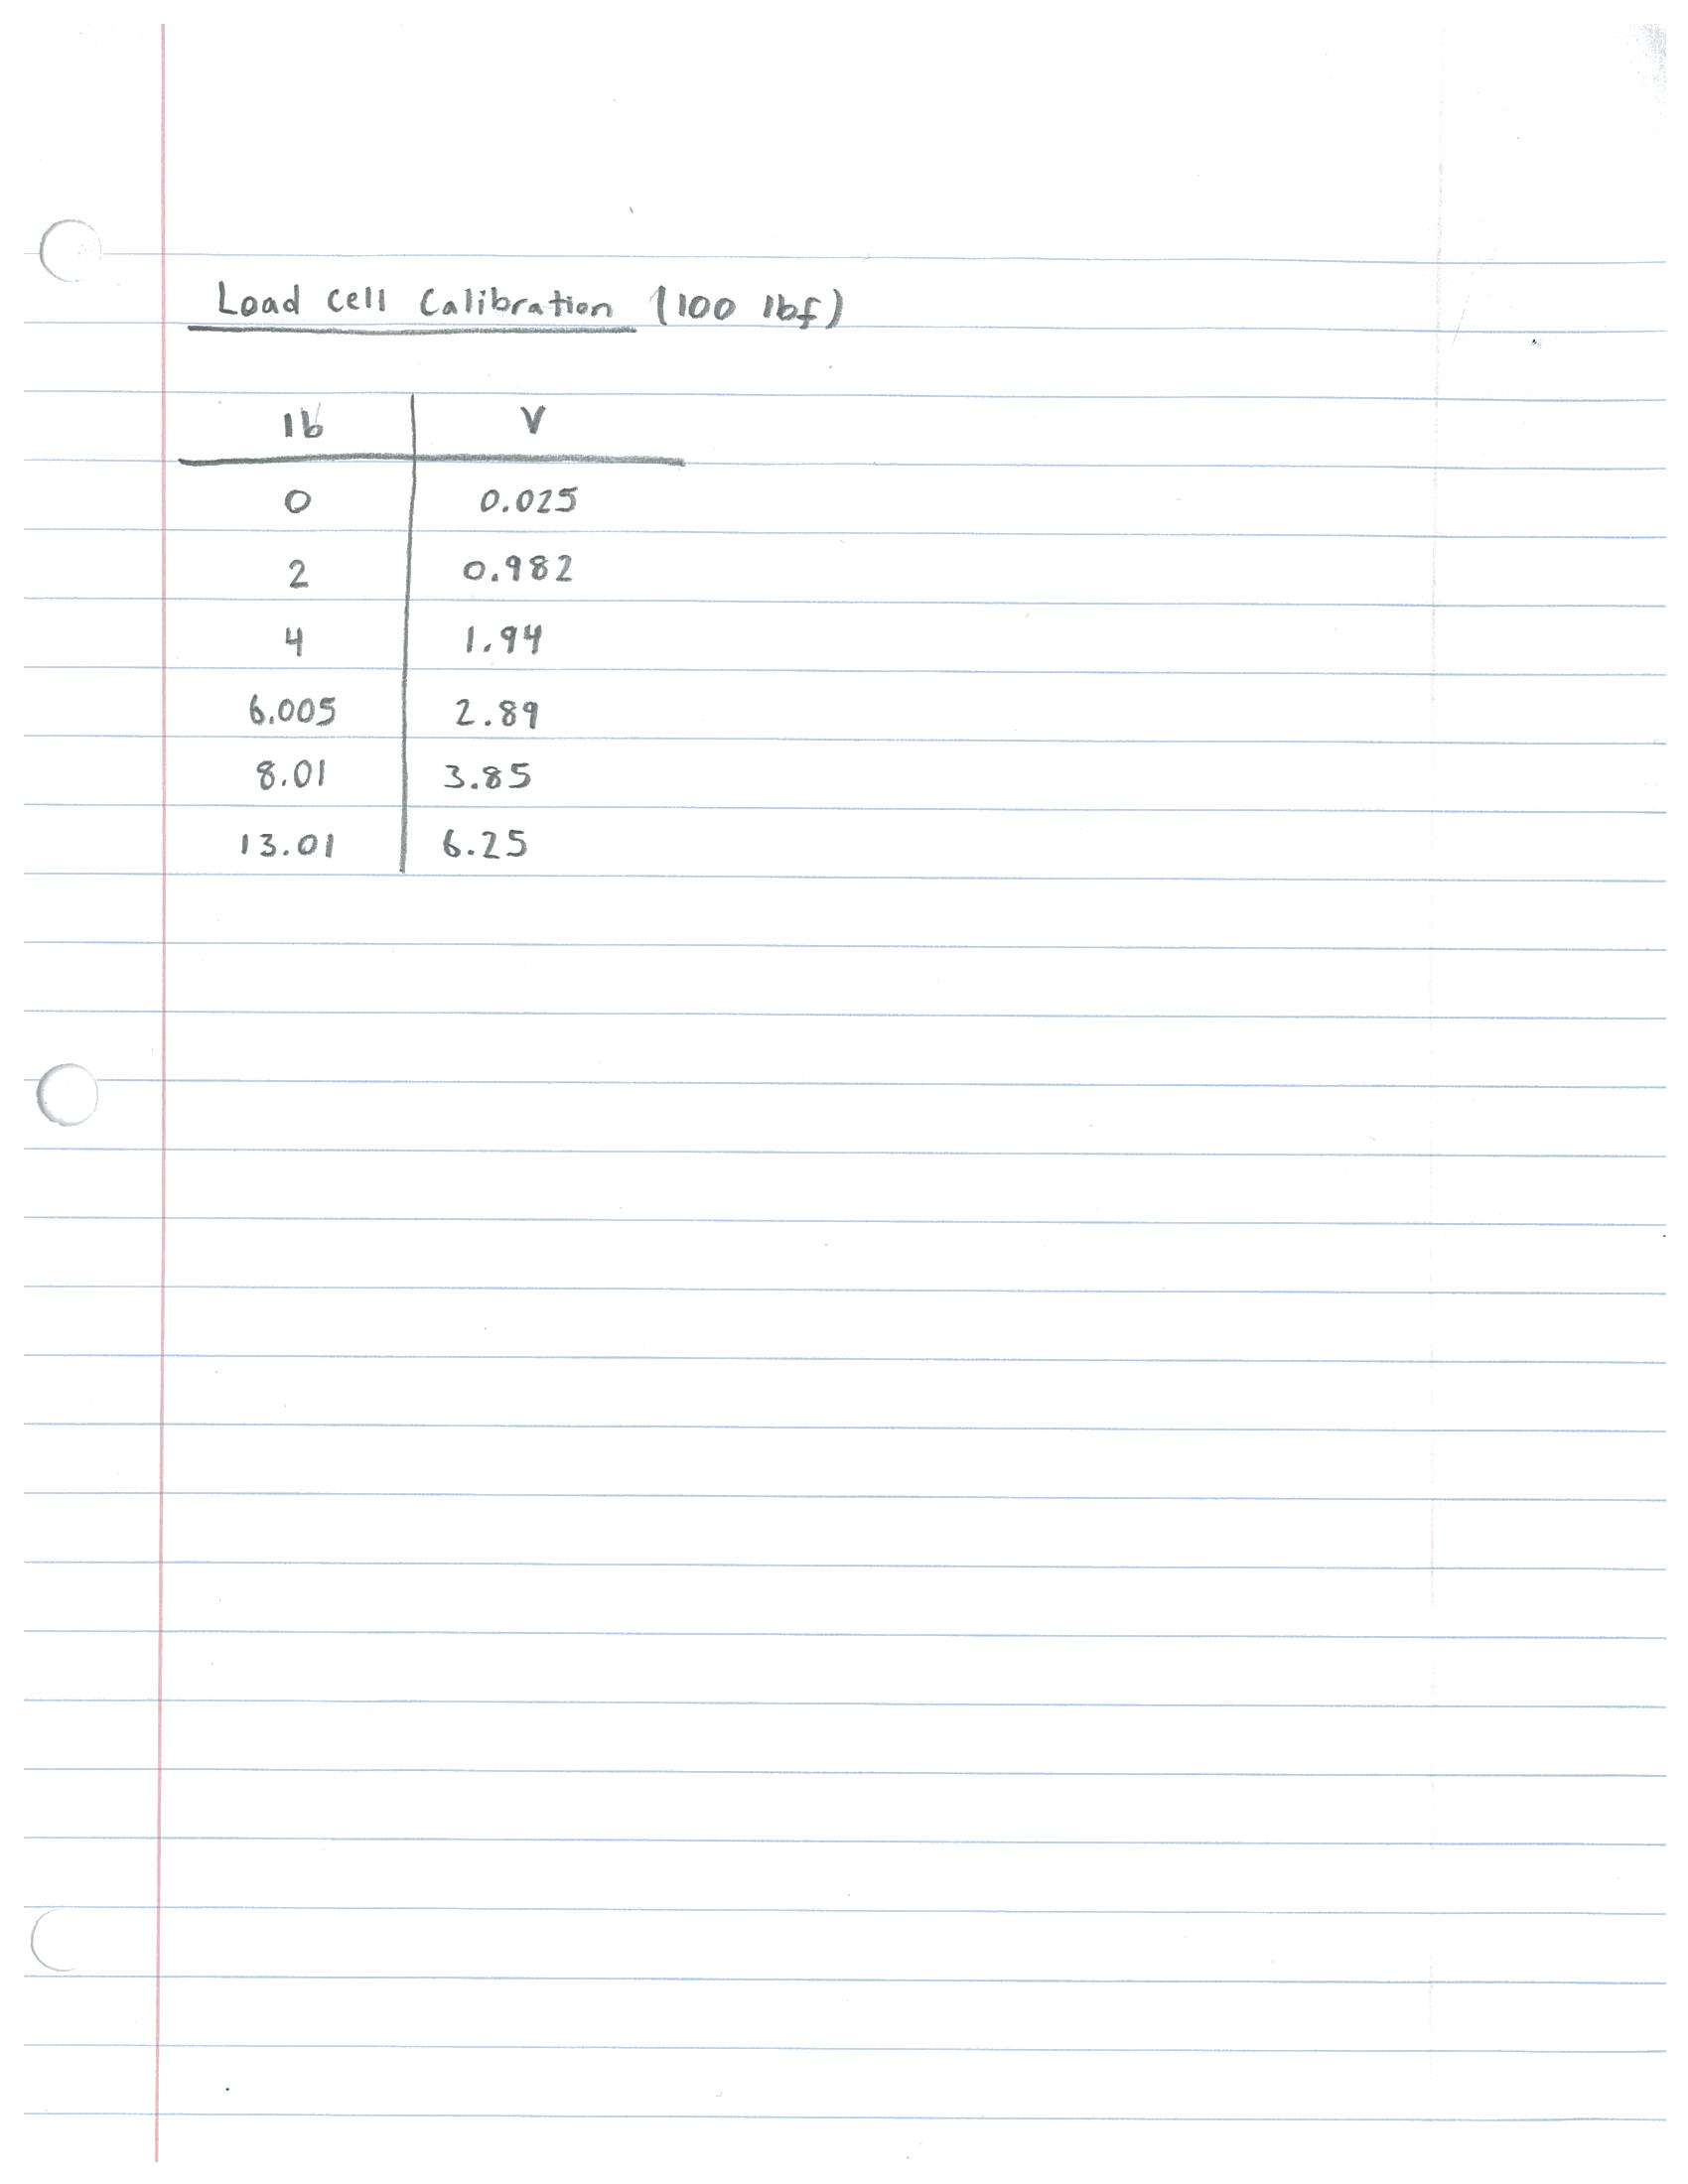 Load Cell Calibration (100 lbf)
lb V
0 0.025
2 0.982
4 1.94
6.005 2.89
8.01 3.85
13.01 6.25